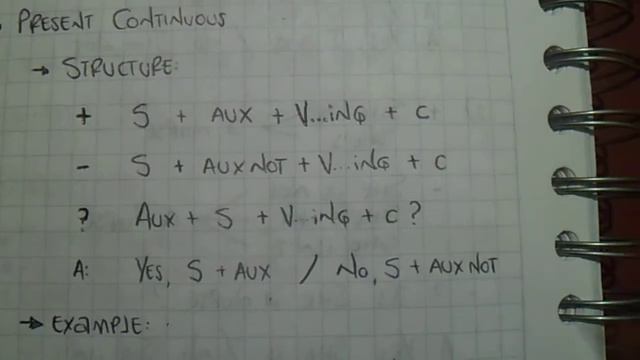 PRESENT CONTINUOUS
→ STRUCTURE:
+ S + AUX + V...ING + C
- S + AUX NOT + V...ING + C
? AUX + S + V...ING + C ?
A: YES, S + AUX / NO, S + AUX NOT
→ EXAMPLE: